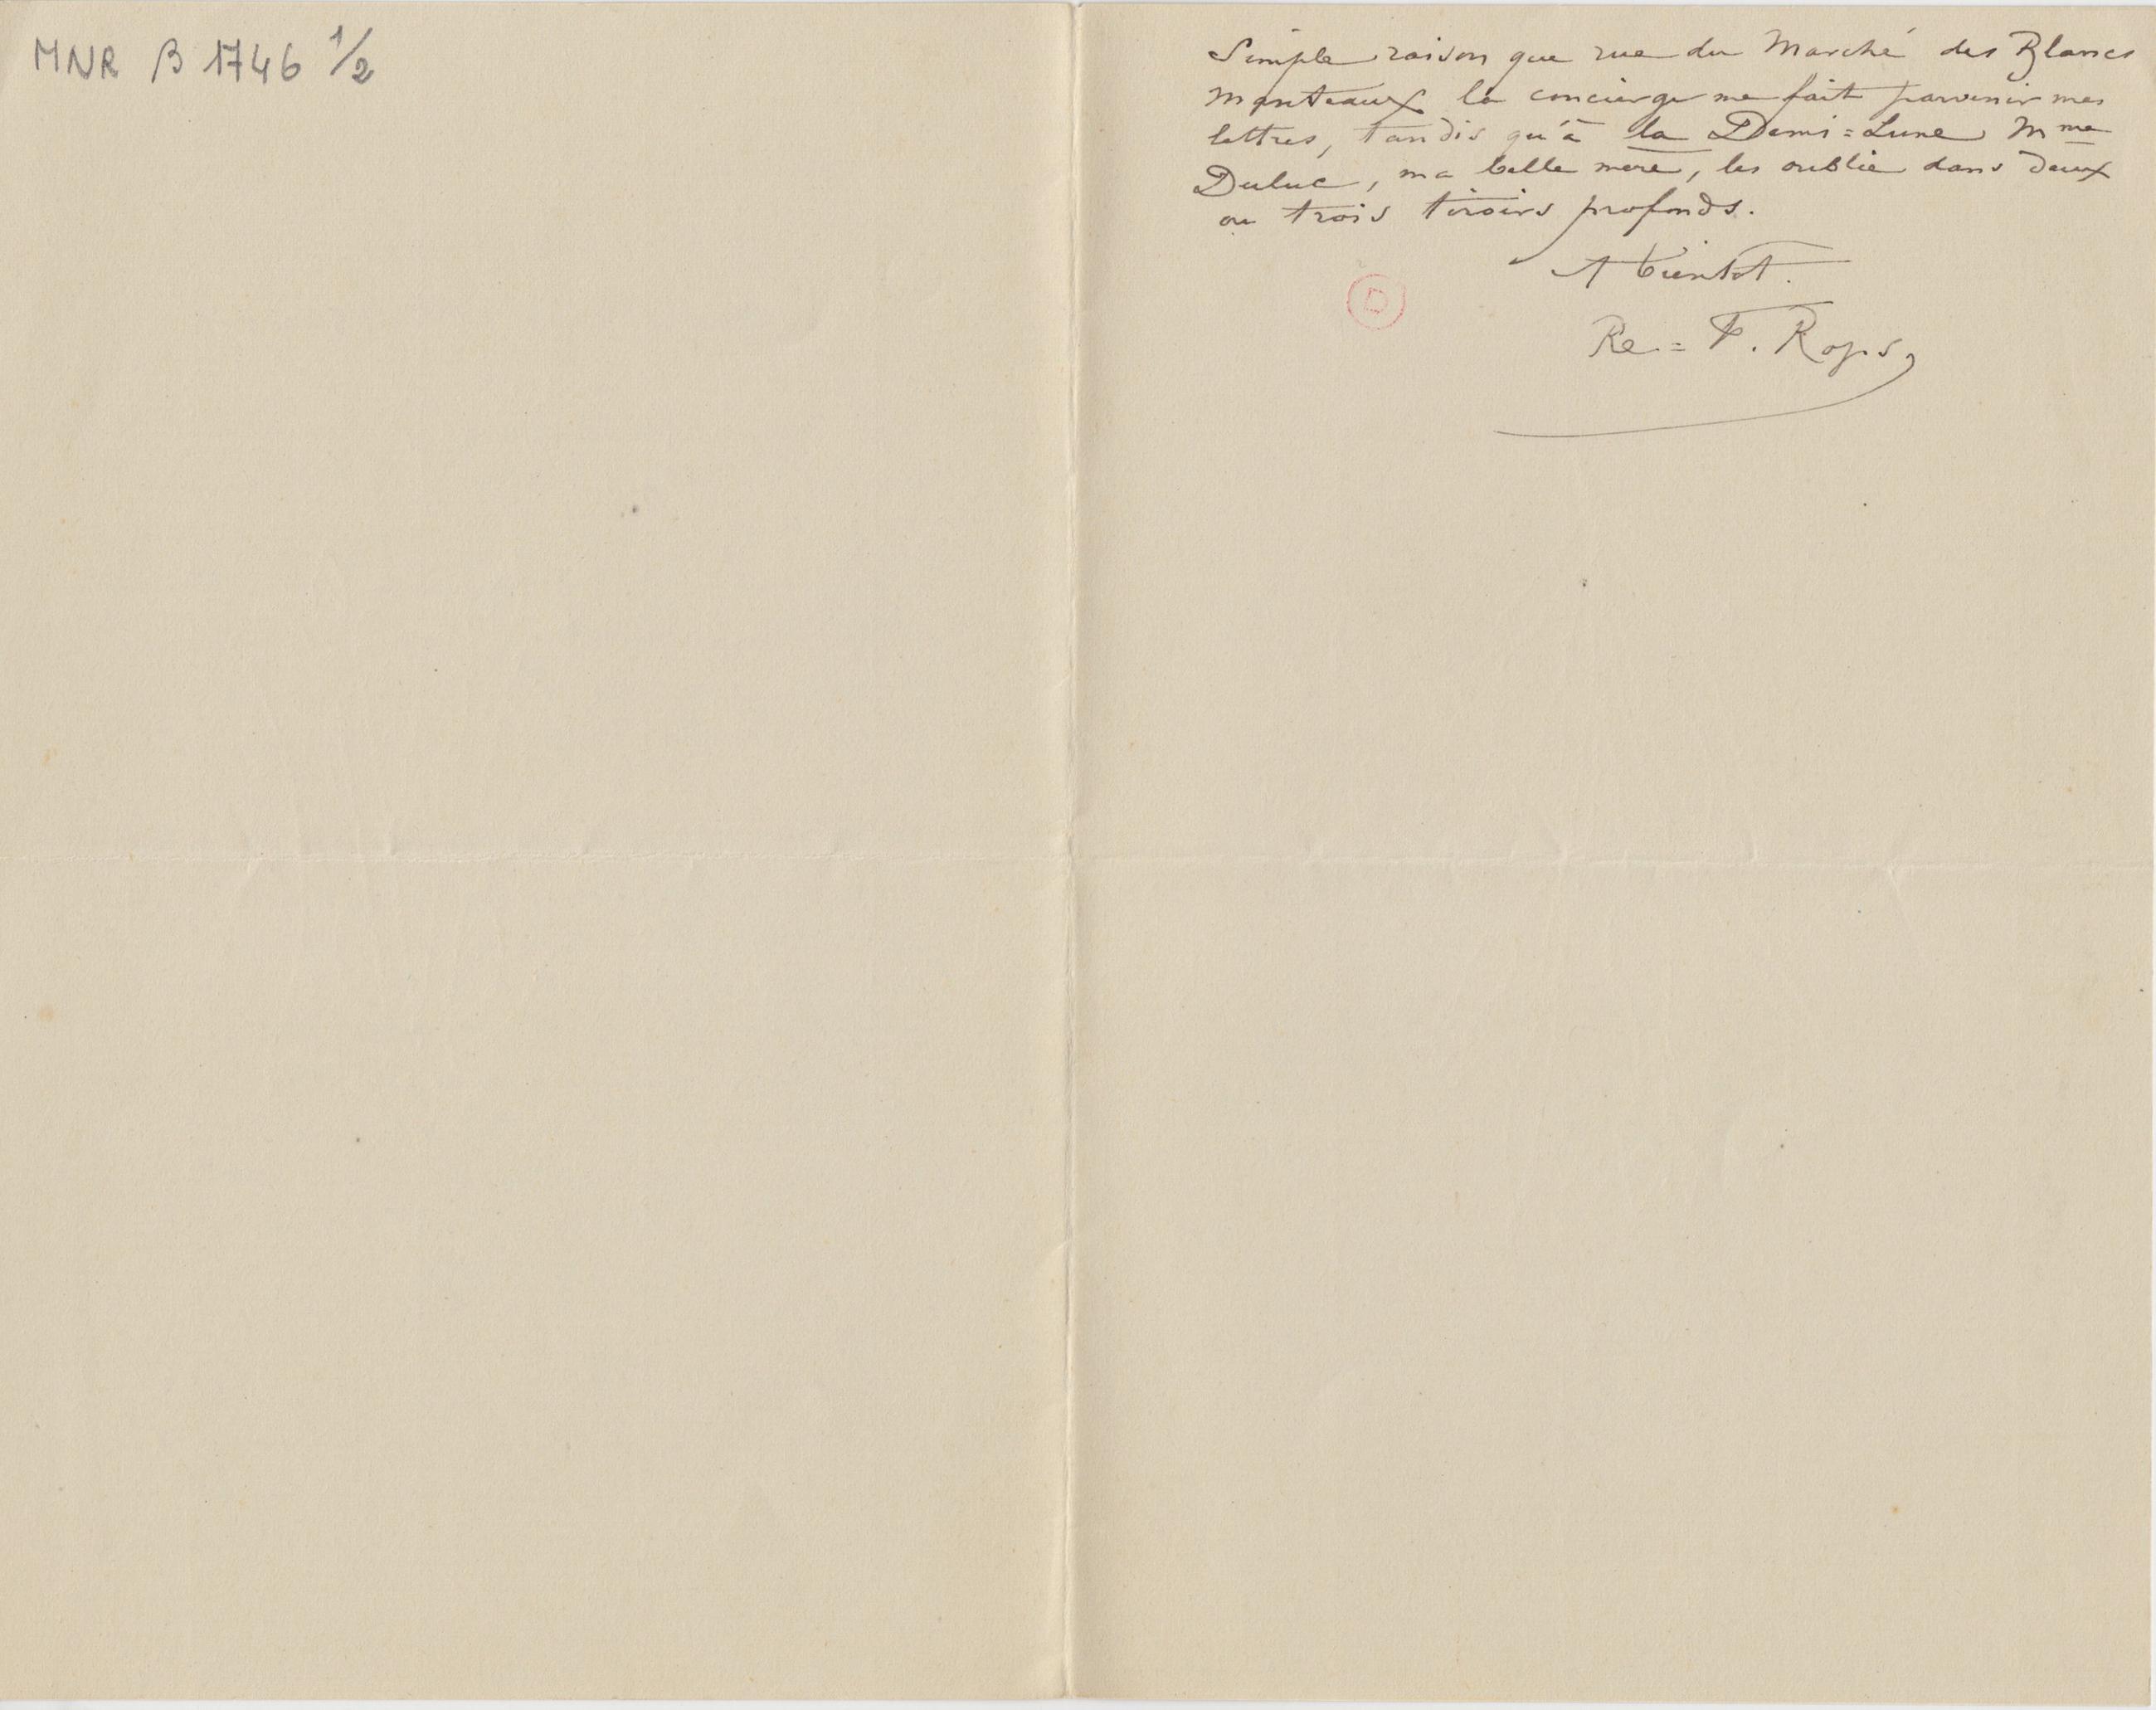 MNR B 1746 1/2
Simple raison que rue du Marché des Blancs
Manteaux la concierge me fait parvenir mes
lettres, tandis qu'à la Demi=Lune Mme
Duluc, ma belle mere, les oublie dans deux
ou trois tiroirs profonds.
A bientot.
Re= F. Rops
D